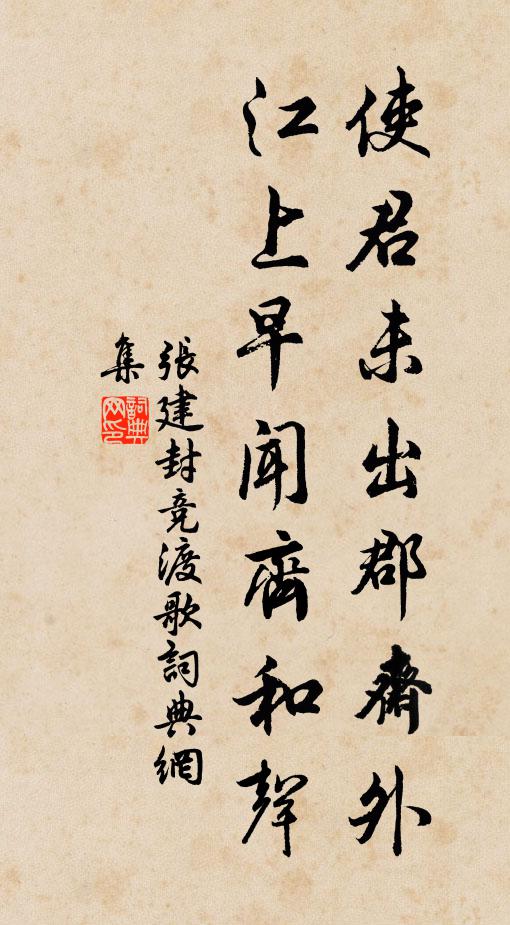 使君未出郡齋外
江上早聞齊和聲
張建封競渡歌詞典網
集
詞典網印